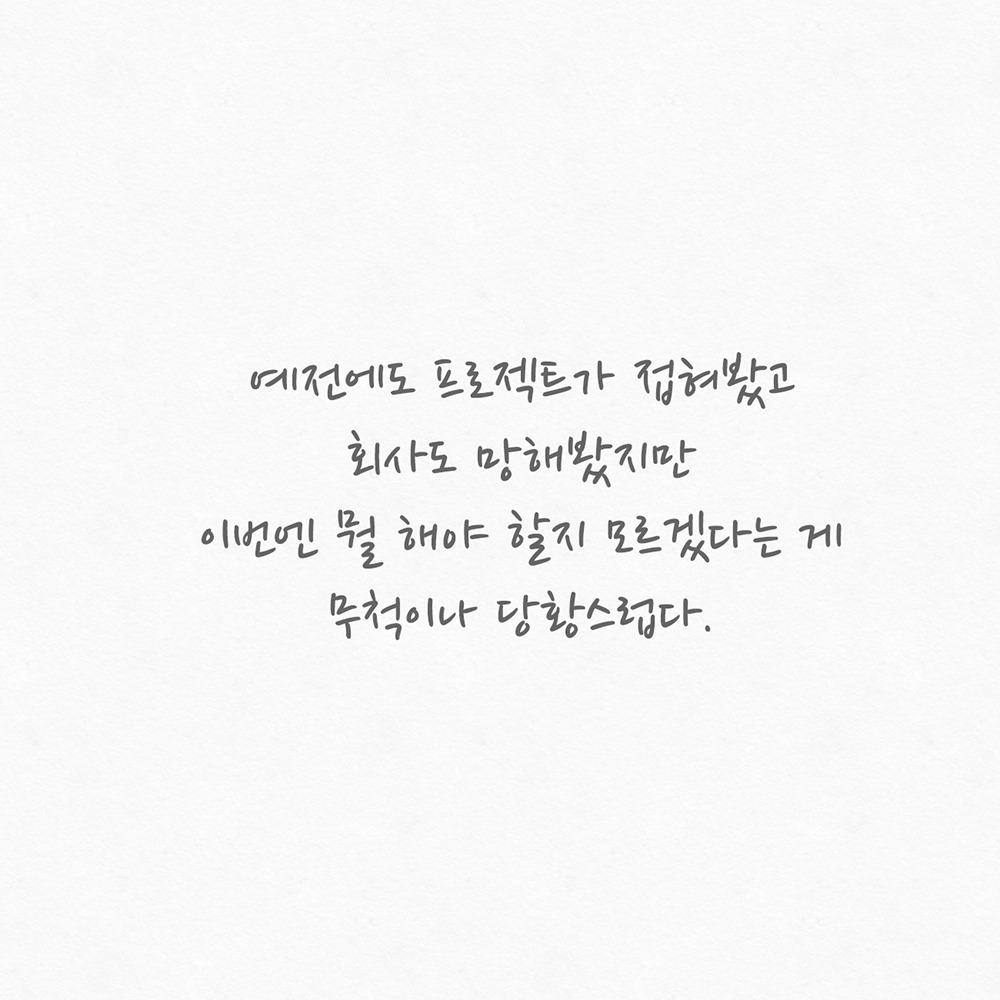 예전에도 프로젝트가 접혀봤고
회사도 망해봤지만
이번엔 뭘 해야 할지 모르겠다는 게
무척이나 당황스럽다.